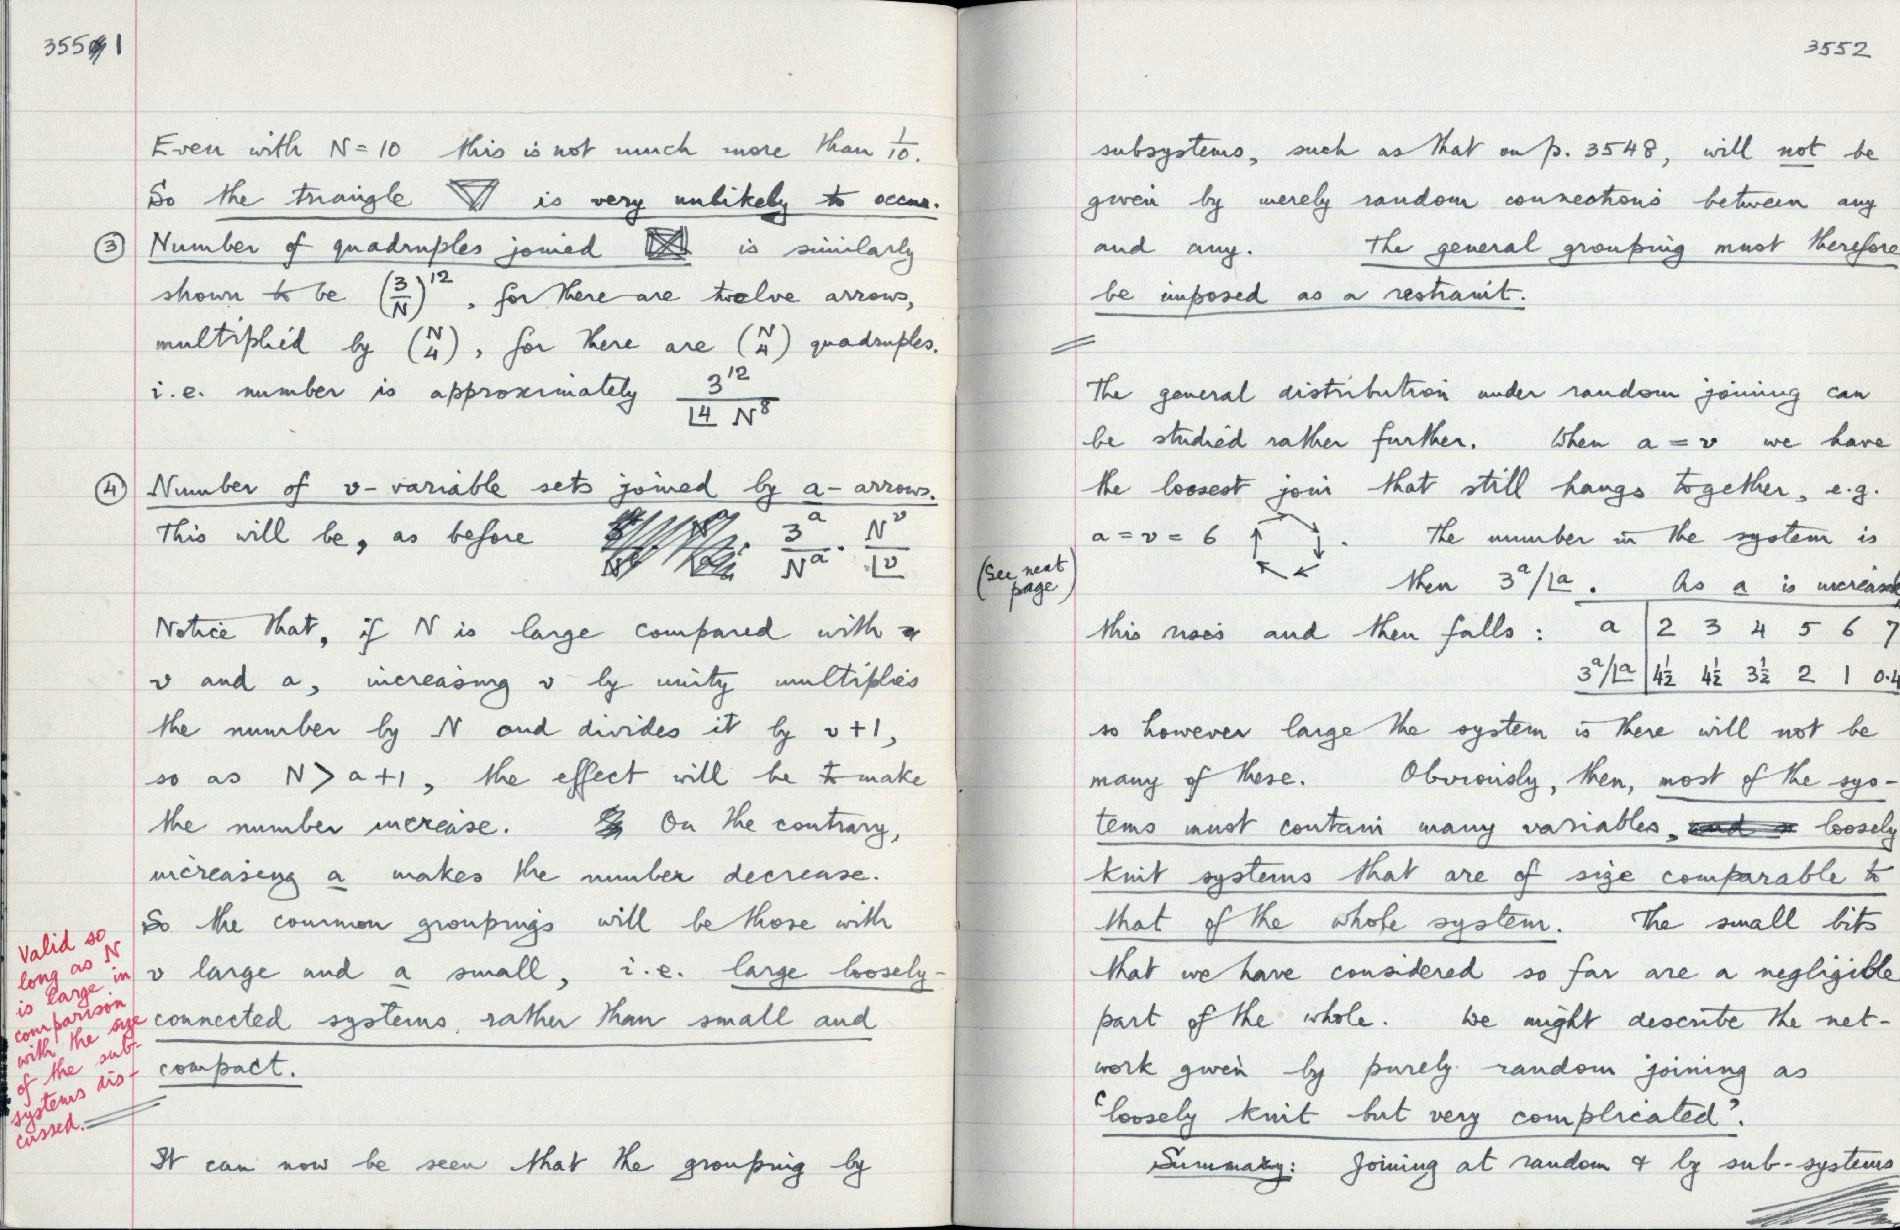 3551
Even with N = 10 this is not much more than 1/10.
So the triangle is very unlikely to occur.
③ Number of quadruples joined is similarly
shown to be (3/N)^12, for there are twelve arrows,
multiplied by (N 4), for there are (N 4) quadruples.
i.e. number is approximately 3^12 / ⌊4 N^8
④ Number of v-variable sets joined by a-arrows.
This will be, as before 3^a/N^a · N^v/⌊v
Notice that, if N is large compared with
v and a, increasing v by unity multiplies
the number by N and divides it by v+1,
so as N > a+1, the effect will be to make
the number increase. On the contrary,
increasing a makes the number decrease.
So the common groupings will be those with
v large and a small, i.e. large loosely-
connected systems rather than small and
compact.
Valid so
long as N
is large in
comparison
with the size
of the sub-
systems dis-
cussed.
It can now be seen that the grouping by
3552
subsystems, such as that on p. 3548, will not be
given by merely random connections between any
and any. The general grouping must therefore
be imposed as a restraint.
The general distribution under random joining can
be studied rather further. When a = v we have
the loosest join that still hangs together, e.g.
a = v = 6 . The number in the system is
(See next
page)
then 3^a/⌊a. As a is increased
this rises and then falls: a 2 3 4 5 6 7
3^a/⌊a 4½ 4½ 3½ 2 1 0.4
so however large the system is there will not be
many of these. Obviously, then, most of the sys-
tems must contain many variables, loosely
knit systems that are of size comparable to
that of the whole system. The small bits
that we have considered so far are a negligible
part of the whole. We might describe the net-
work given by purely random joining as
'loosely knit but very complicated'.
Summary: Joining at random & by sub-systems